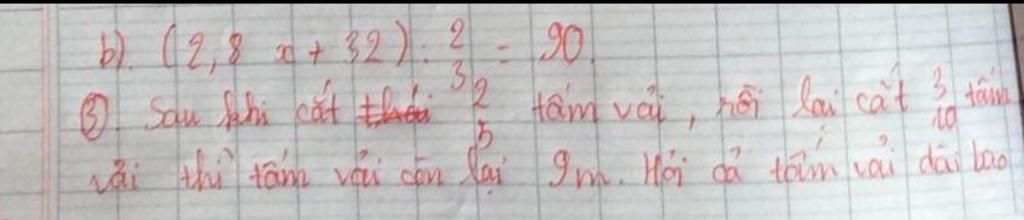 b). (2,8 x + 32) : 2/3 = 90
③ Sau khi cắt 2/5 tấm vải, rồi lại cắt 3/10 tấm
vải thì tấm vải còn lại 9m. Hỏi cả tấm vải dài bao